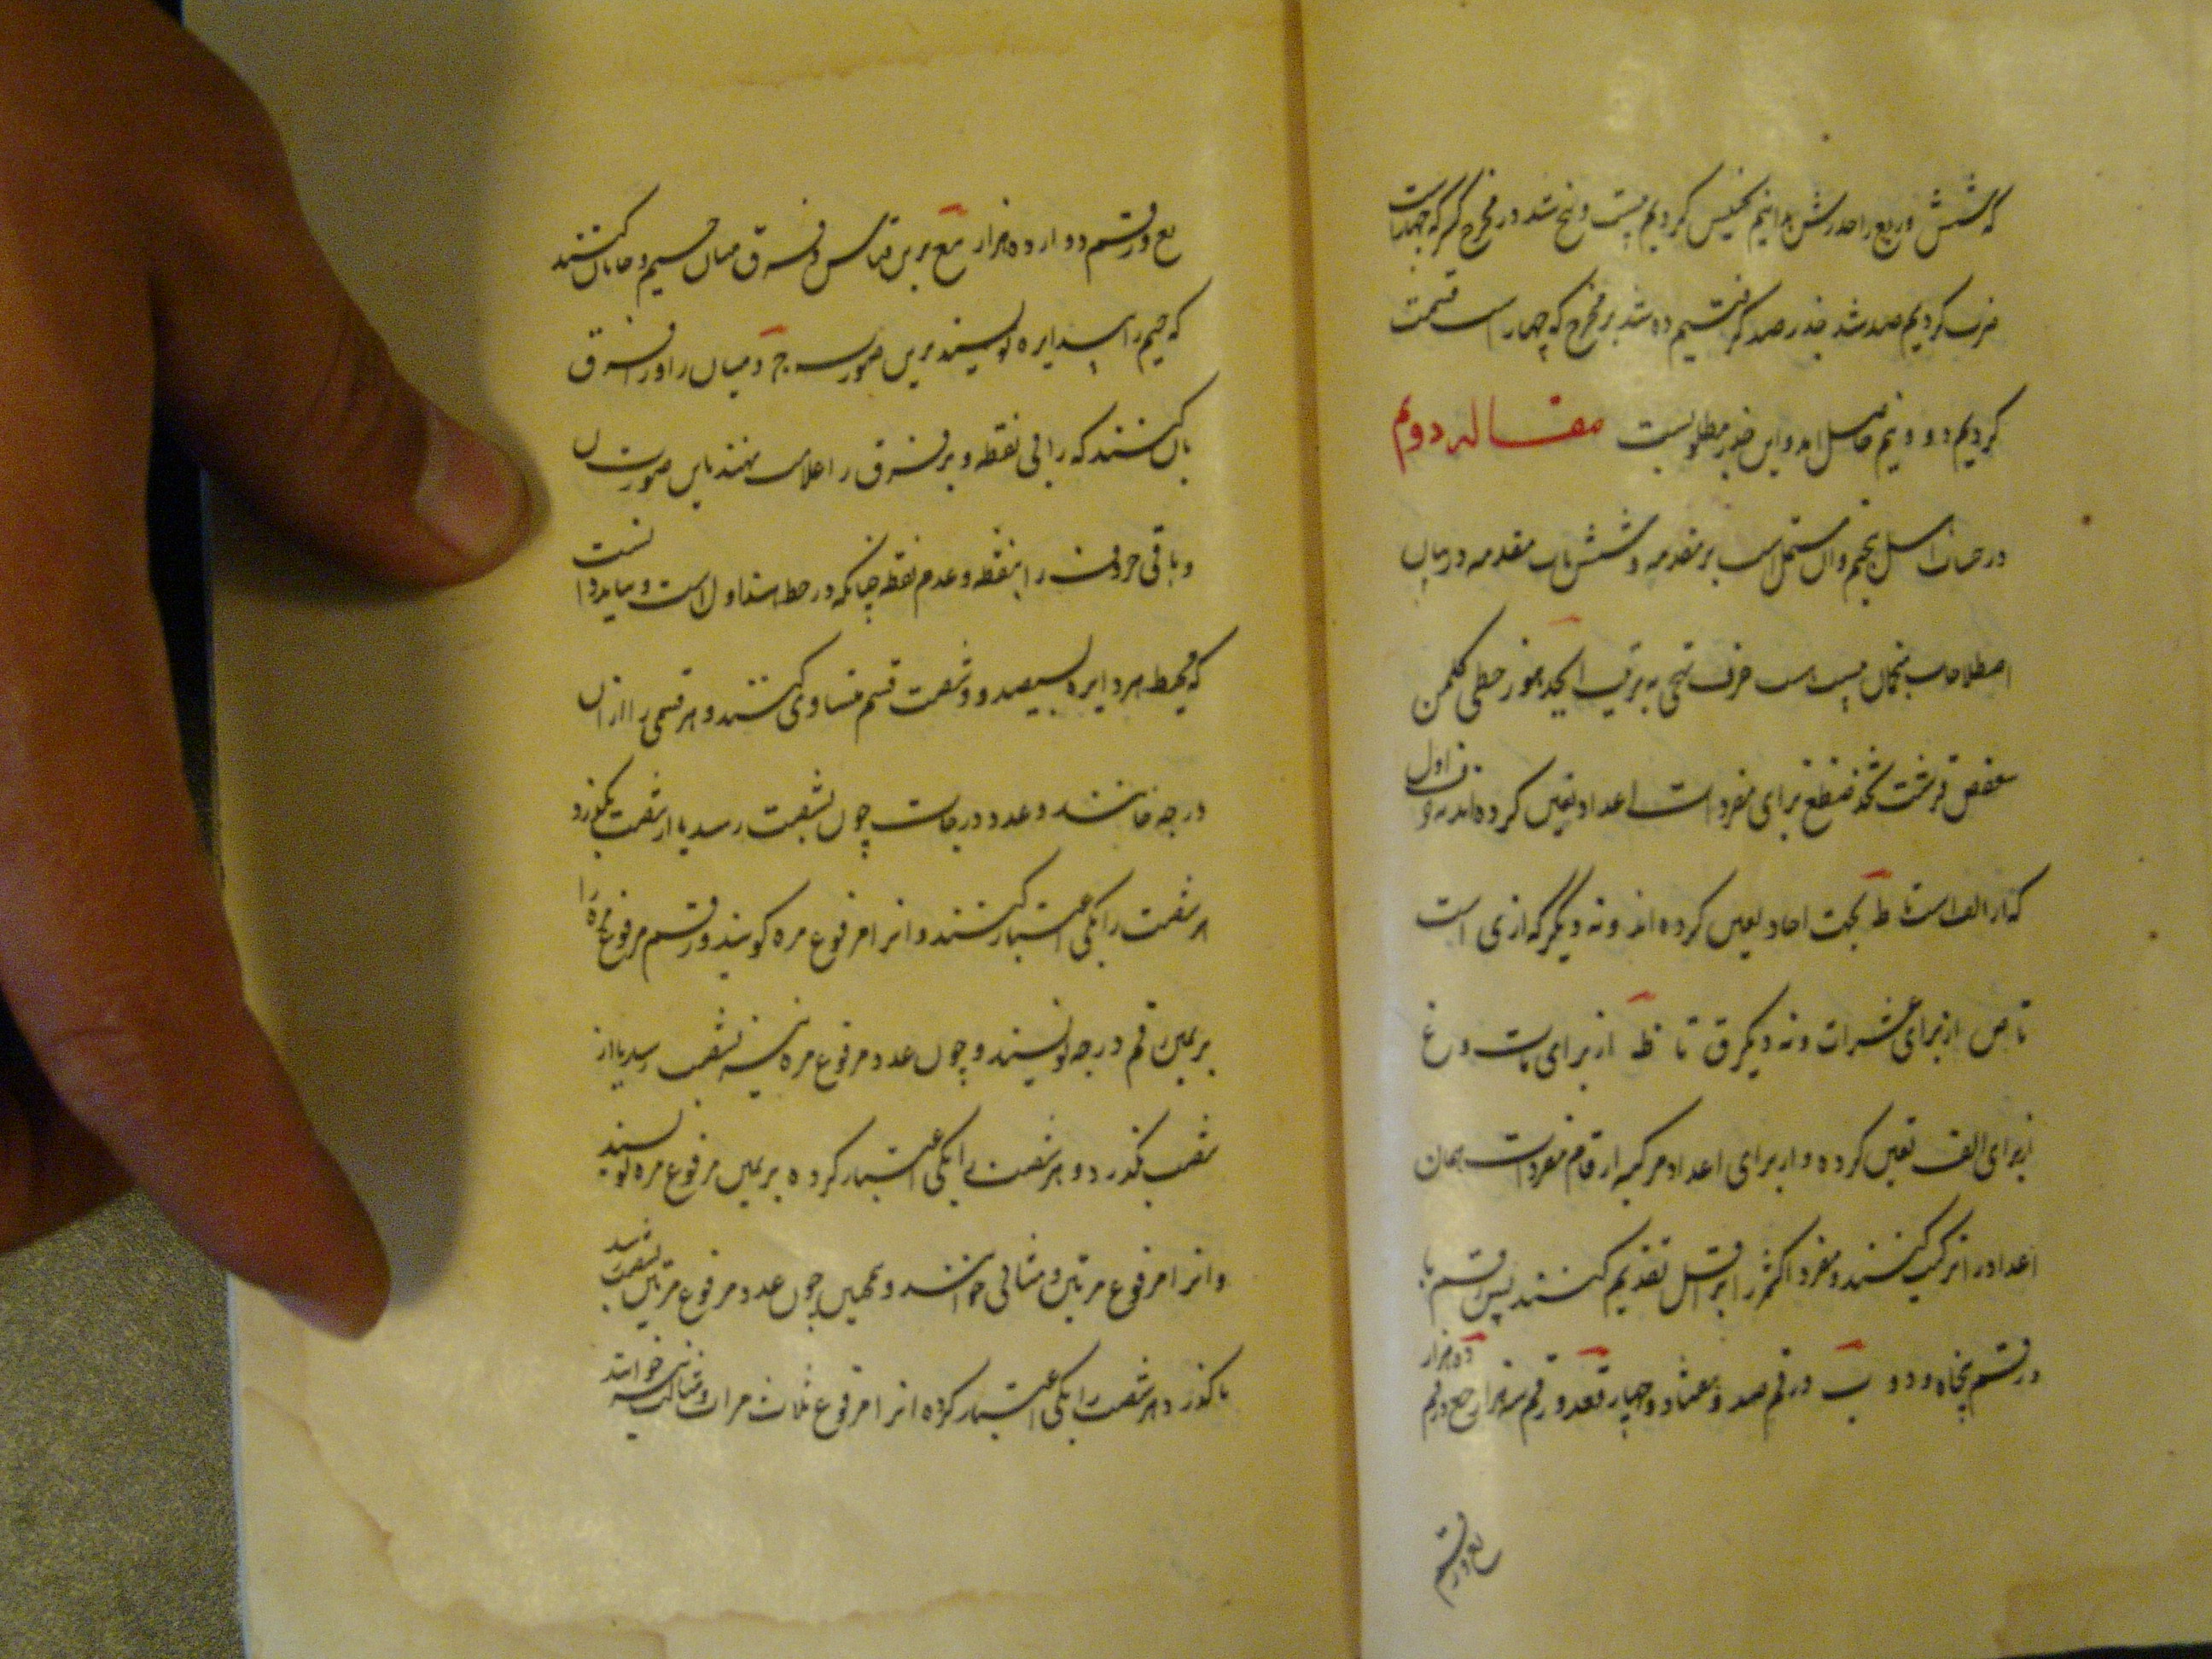 که شش و ربع را جذرش بدانیم تجنیس کردیم بیست و پنج شد در مخرج کسر که چهارست
ضرب کردیم صد شد جذر صد گرفتیم ده شد بر مخرج که چهار است قسمت
کردیم دو و نیم حاصل آمد و این جذر مطلوبست مقاله دوم
در حساب اهل تنجیم و آن مشتمل است بر مقدمه و شش باب مقدمه در بیان
اصطلاحات منجمان بیست و هشت حرف تهجی به ترتیب ابجد هوز حطی کلمن
سعفص قرشت ثخذ ضظغ برای مفردات اعداد تعین کرده‌اند نه حرف اول
که از الف است تا ط بجهت احاد تعین کرده اند و نه دیگر که از ی است
تا ص از برای عشرات و نه دیگر ق تا ظ از برای مآت و غ
از برای الف تعین کرده و از برای اعداد مرکبه ارقام مفردات همان
اعداد را ترکیب کنند و مفرد اکثر را بر اقل تقدیم کنند پس رقم
و رقم پنجاه و دو نب و رقم صد و هفتاد و چهار قعد و رقم سه هزار جغ و رقم ده هزار
یغ و رقم
یغ و رقم دوازده هزار یبغ برین قیاس و فرق میان جیم و حا بآن کنند
که جیم را بی دایره نویسند برین صورت و میان را و زا فرق
بآن کنند که را بی نقطه و بر فرق ز علامت نهند باین صورت
و باقی حروف را بنقطه و عدم نقطه چنانکه در خط متداول است و بباید دانست
که محیط هر دایره بسیصد و شصت قسم متساوی کنند و هر قسمی را از آن
درجه خوانند و عدد درجات چون بشصت رسد یا از شصت بگذرد
هر شصت را یکی اعتبار کنند و آنرا مرفوع مره گویند و رقم مرفوع مره را
بر یمین رقم درجه نویسند و چون عدد مرفوع مره نیز بشصت رسد یا از
شصت بگذرد و هر شصت را یکی اعتبار کرده بر یمین مرفوع مره نویسند
و آنرا مرفوع مرتین و مثانی خوانند و همچنین چون عدد مرفوع مرتین بشصت رسد
یا بگذرد هر شصت را یکی اعتبار کرده آنرا مرفوع ثلاث مرات و مثالث خوانند